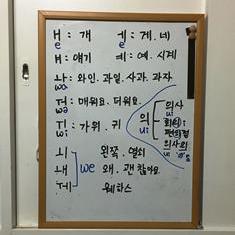 ㅐ : 개 ㅔ : 게. 네
e e
ㅒ : 얘기 ㅖ : 예. 시계
ㅘ : 와인. 과일. 사과. 과자
wa
ㅝ : 매워요. 더워요.
wo
ㅟ : 가위. 귀
wi
의 의사
ui ui
회의 i
편의점
의사의
ui "e"
ㅚ 왼쪽. 열쇠
ㅙ we 왜. 괜찮아요.
ㅞ 웨하스